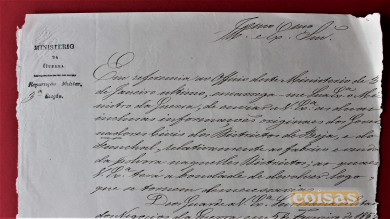 MINISTERIO
DA
GUERRA.
Repartição Militar.
3ª Secção.
Illmo e Exmo Snr.
Em referencia ao Officio deste Ministerio de
de Janeiro ultimo, o Mi-
nistro da Guerra, de enviar a V. Exª as
inclusas informações originaes dos Gover-
nadores Civis dos Districtos de Beja, e do
Funchal, relativamente ao fabrico e venda
da polvora naquelles Districtos, as quaes
V. Exª terá a bondade de devolver logo
que se tornem desnecessarias.
Deos Guarde a V. Exª
dos Negocios da Guerra em 5 de
coisas